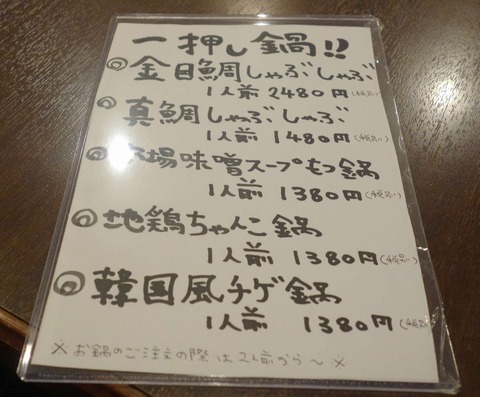 一押し鍋!!
◎金目鯛しゃぶしゃぶ
1人前 2480円
◎真鯛しゃぶしゃぶ
1人前 1480円
場味噌スープもつ鍋
1人前 1380円
◎地鶏ちゃんこ鍋
1人前 1380円
◎韓国風チゲ鍋
1人前 1380円
※お鍋のご注文の際は2人前から〜※